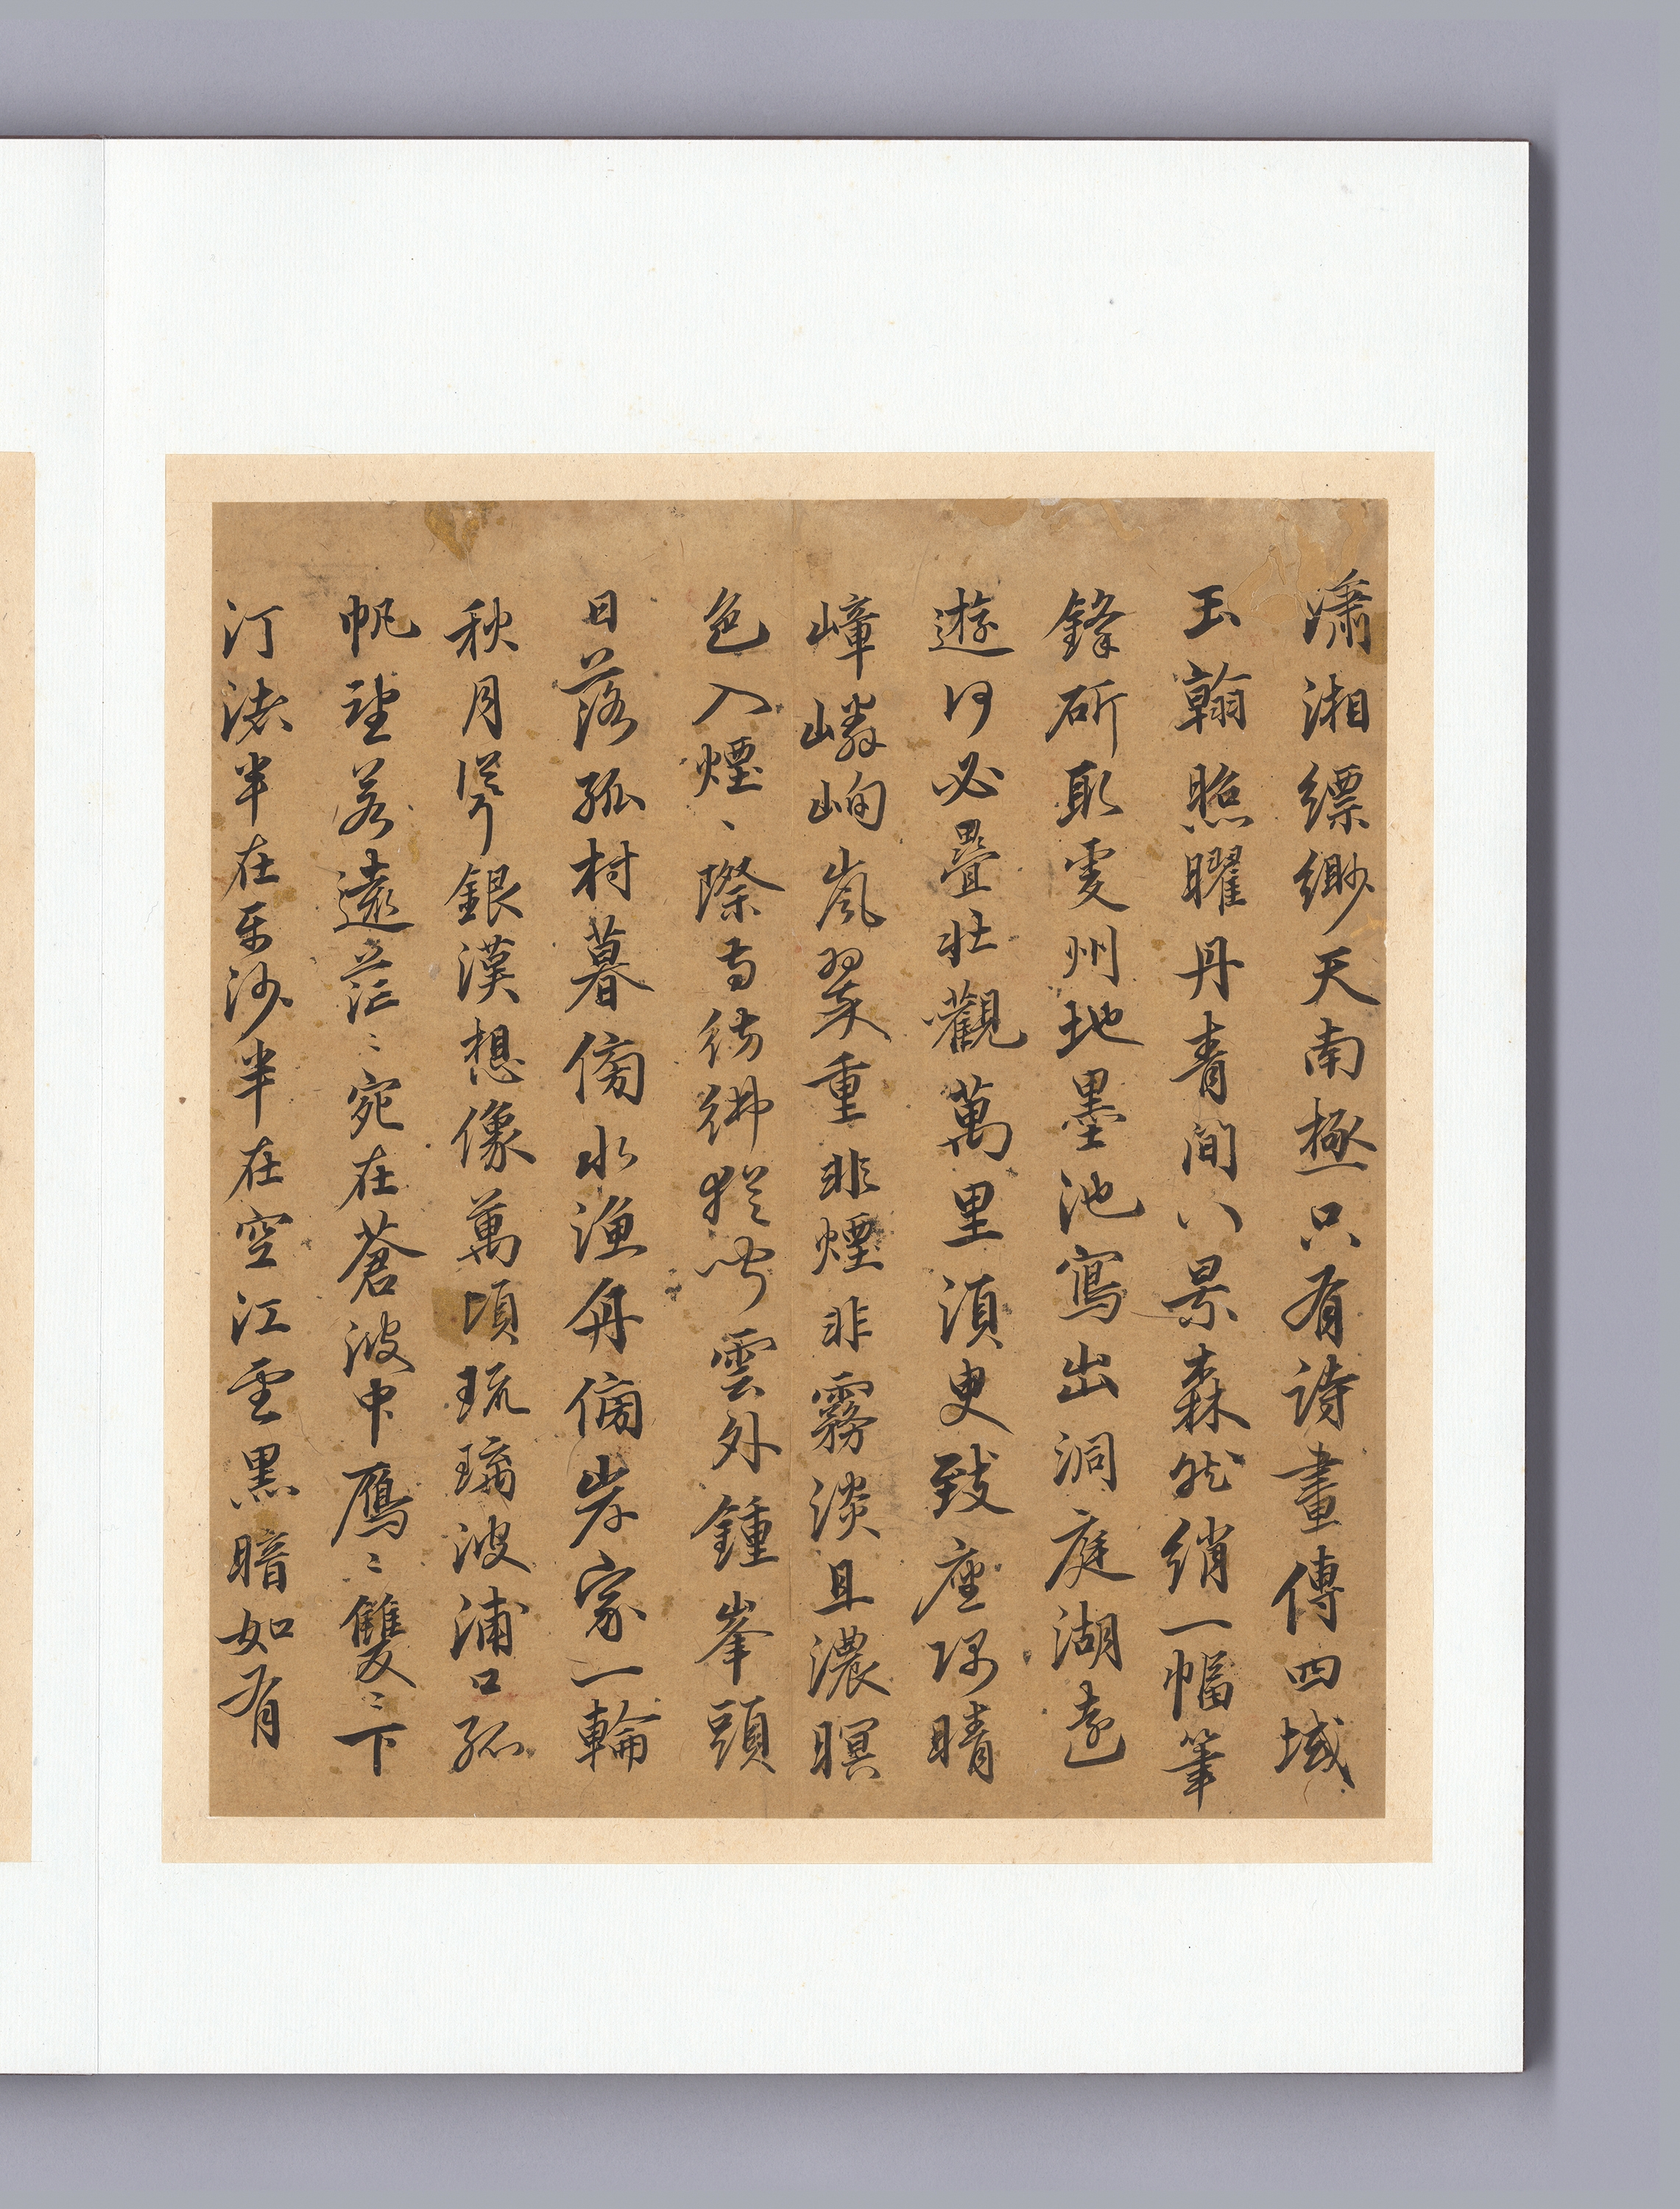 瀟湘縹緲天南極只有詩畫傳四域
玉翰照曜丹青間八景森然綃一幅筆
鋒斫取雯州地墨池寫出洞庭湖遠
遊何必疊壯觀萬里須臾致座隅晴
嶂嶙峋嵐翠重非煙非霧淡且濃暝
色入煙、際寺彷彿猶聞雲外鍾峯頭
日落孤村暮傍水漁舟傍岸家一輪
秋月浮銀漢想像萬頃琉璃波浦口孤
帆望若遠茫〻宛在蒼波中鴈〻雙〻下
汀渚半在平沙半在空江雲黑暗如有